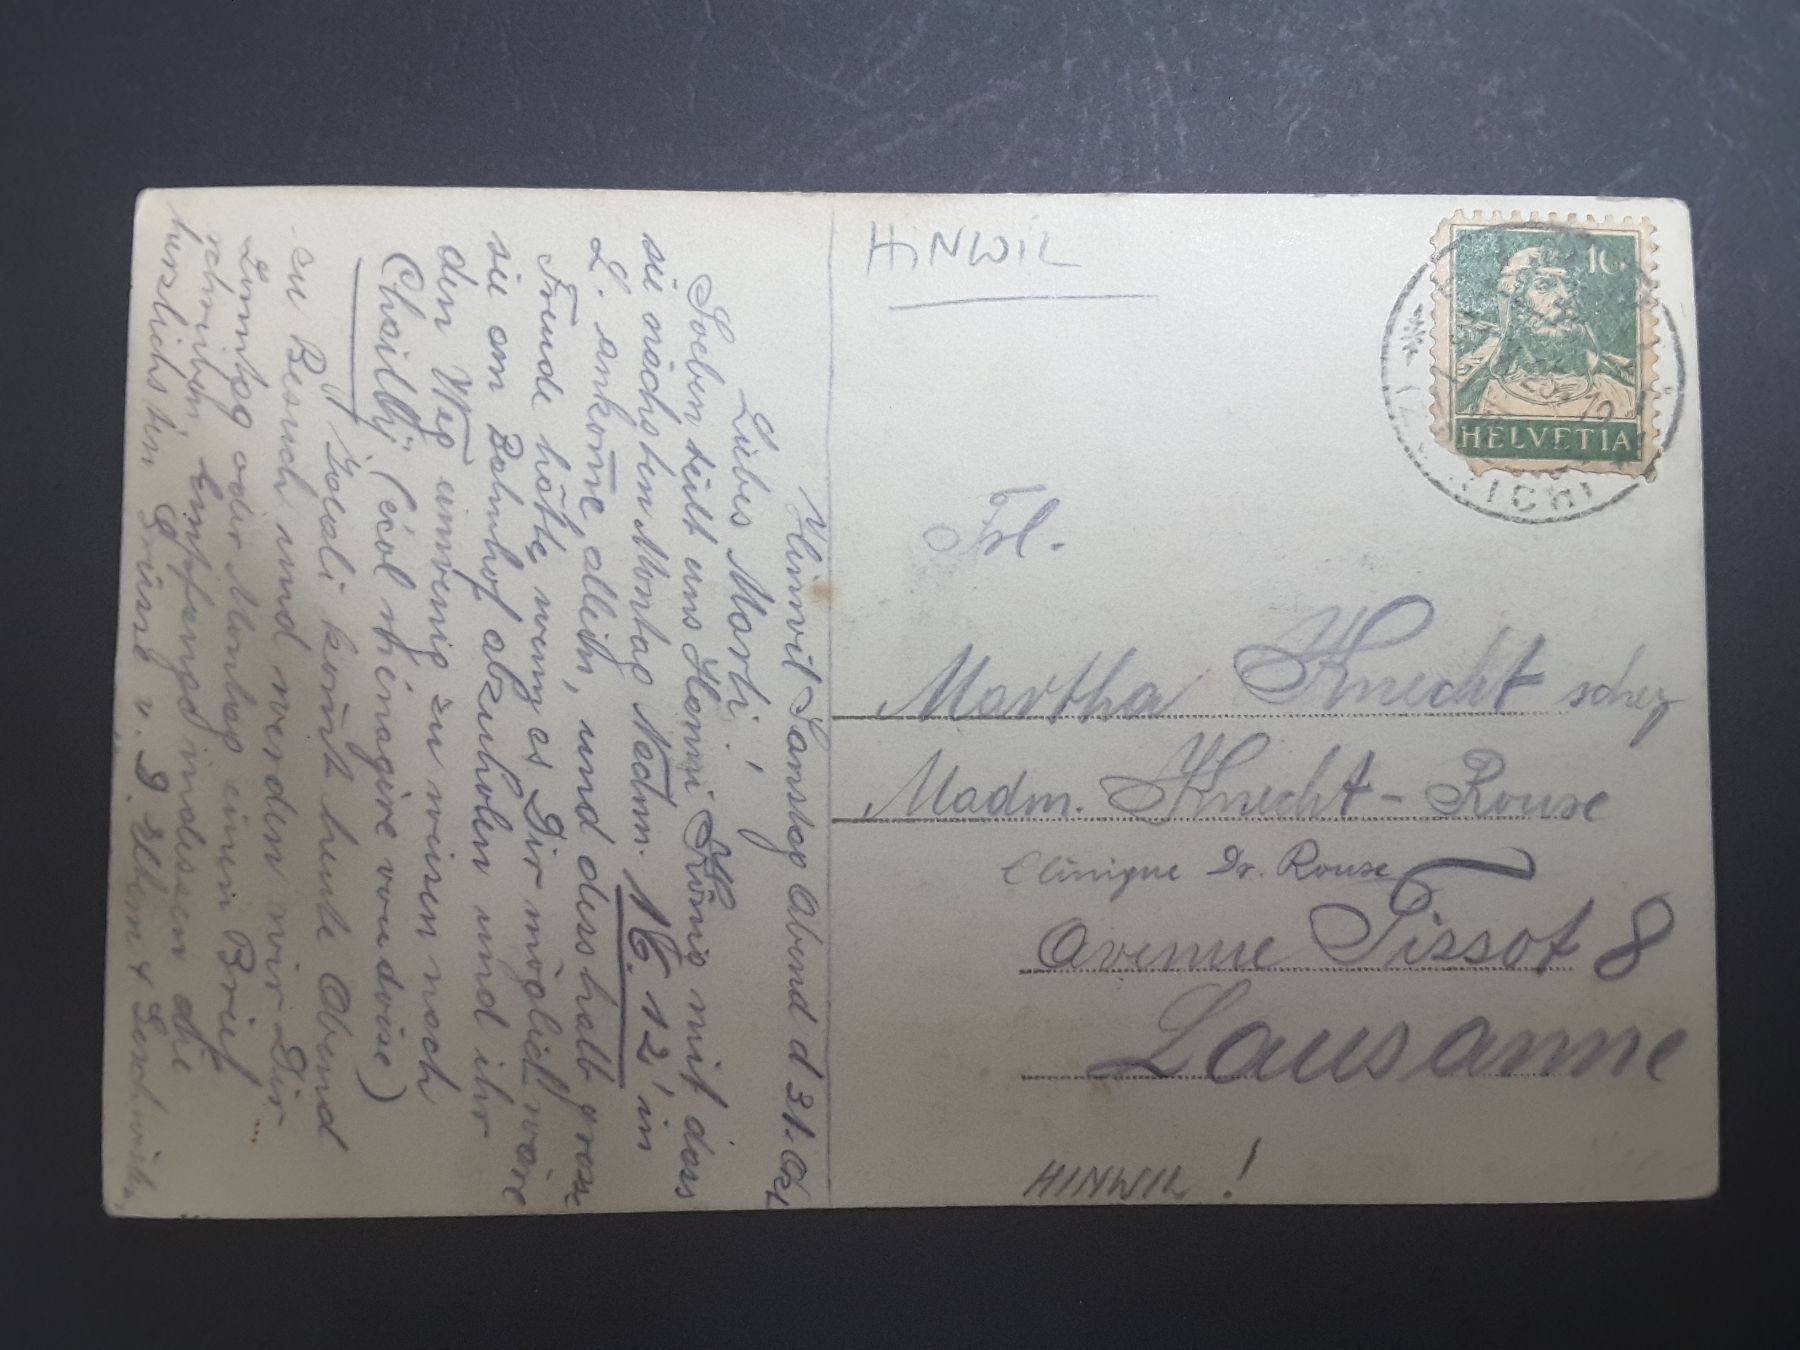 Hinwil Samstag Abend d 31. Okt
Liebes Marti!
Soeben teilt uns Hanni König mit dass
sie nächsten Montag Nachm. 16.12' in
L. ankome, allein, und desshalb grosse
Freude hätte, wenn es Dir möglich wäre
sie am Bahnhof abzuholen und ihr
den Weg einwenig zu weisen nach
Chailly (école ménagère vaudoise)
komt heute Abend
zu Besuch und werden wir Dir
Sonntag oder Montag einen Brief
schreiben, Empfange indessen die
herzlichsten Grüsse v. D. Eltern & Geschwister
HiNWiL
10
HELVETIA
Frl.
Martha Knecht
Madm. Knecht-Rouse
Clinique Dr. Rouse
Avenue Tissot 8
Lausanne
HINWIL!